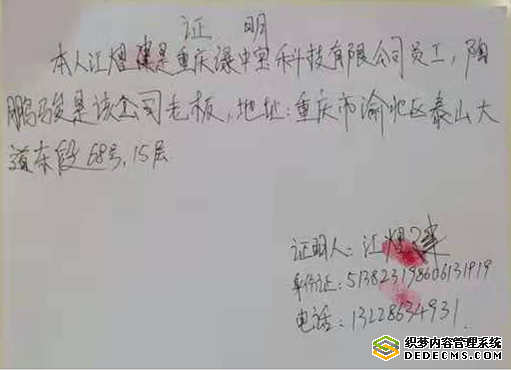 证明
本人江煜建是重庆渌中宝科技有限公司员工，陶
鹏骏是该公司老板，地址：重庆市渝北区泰山大
道东段68号，15层
证明人：江煜建
身份证：513823198606131919
电话：13228634931.
织梦内容管理系统
DEDECMS.COM